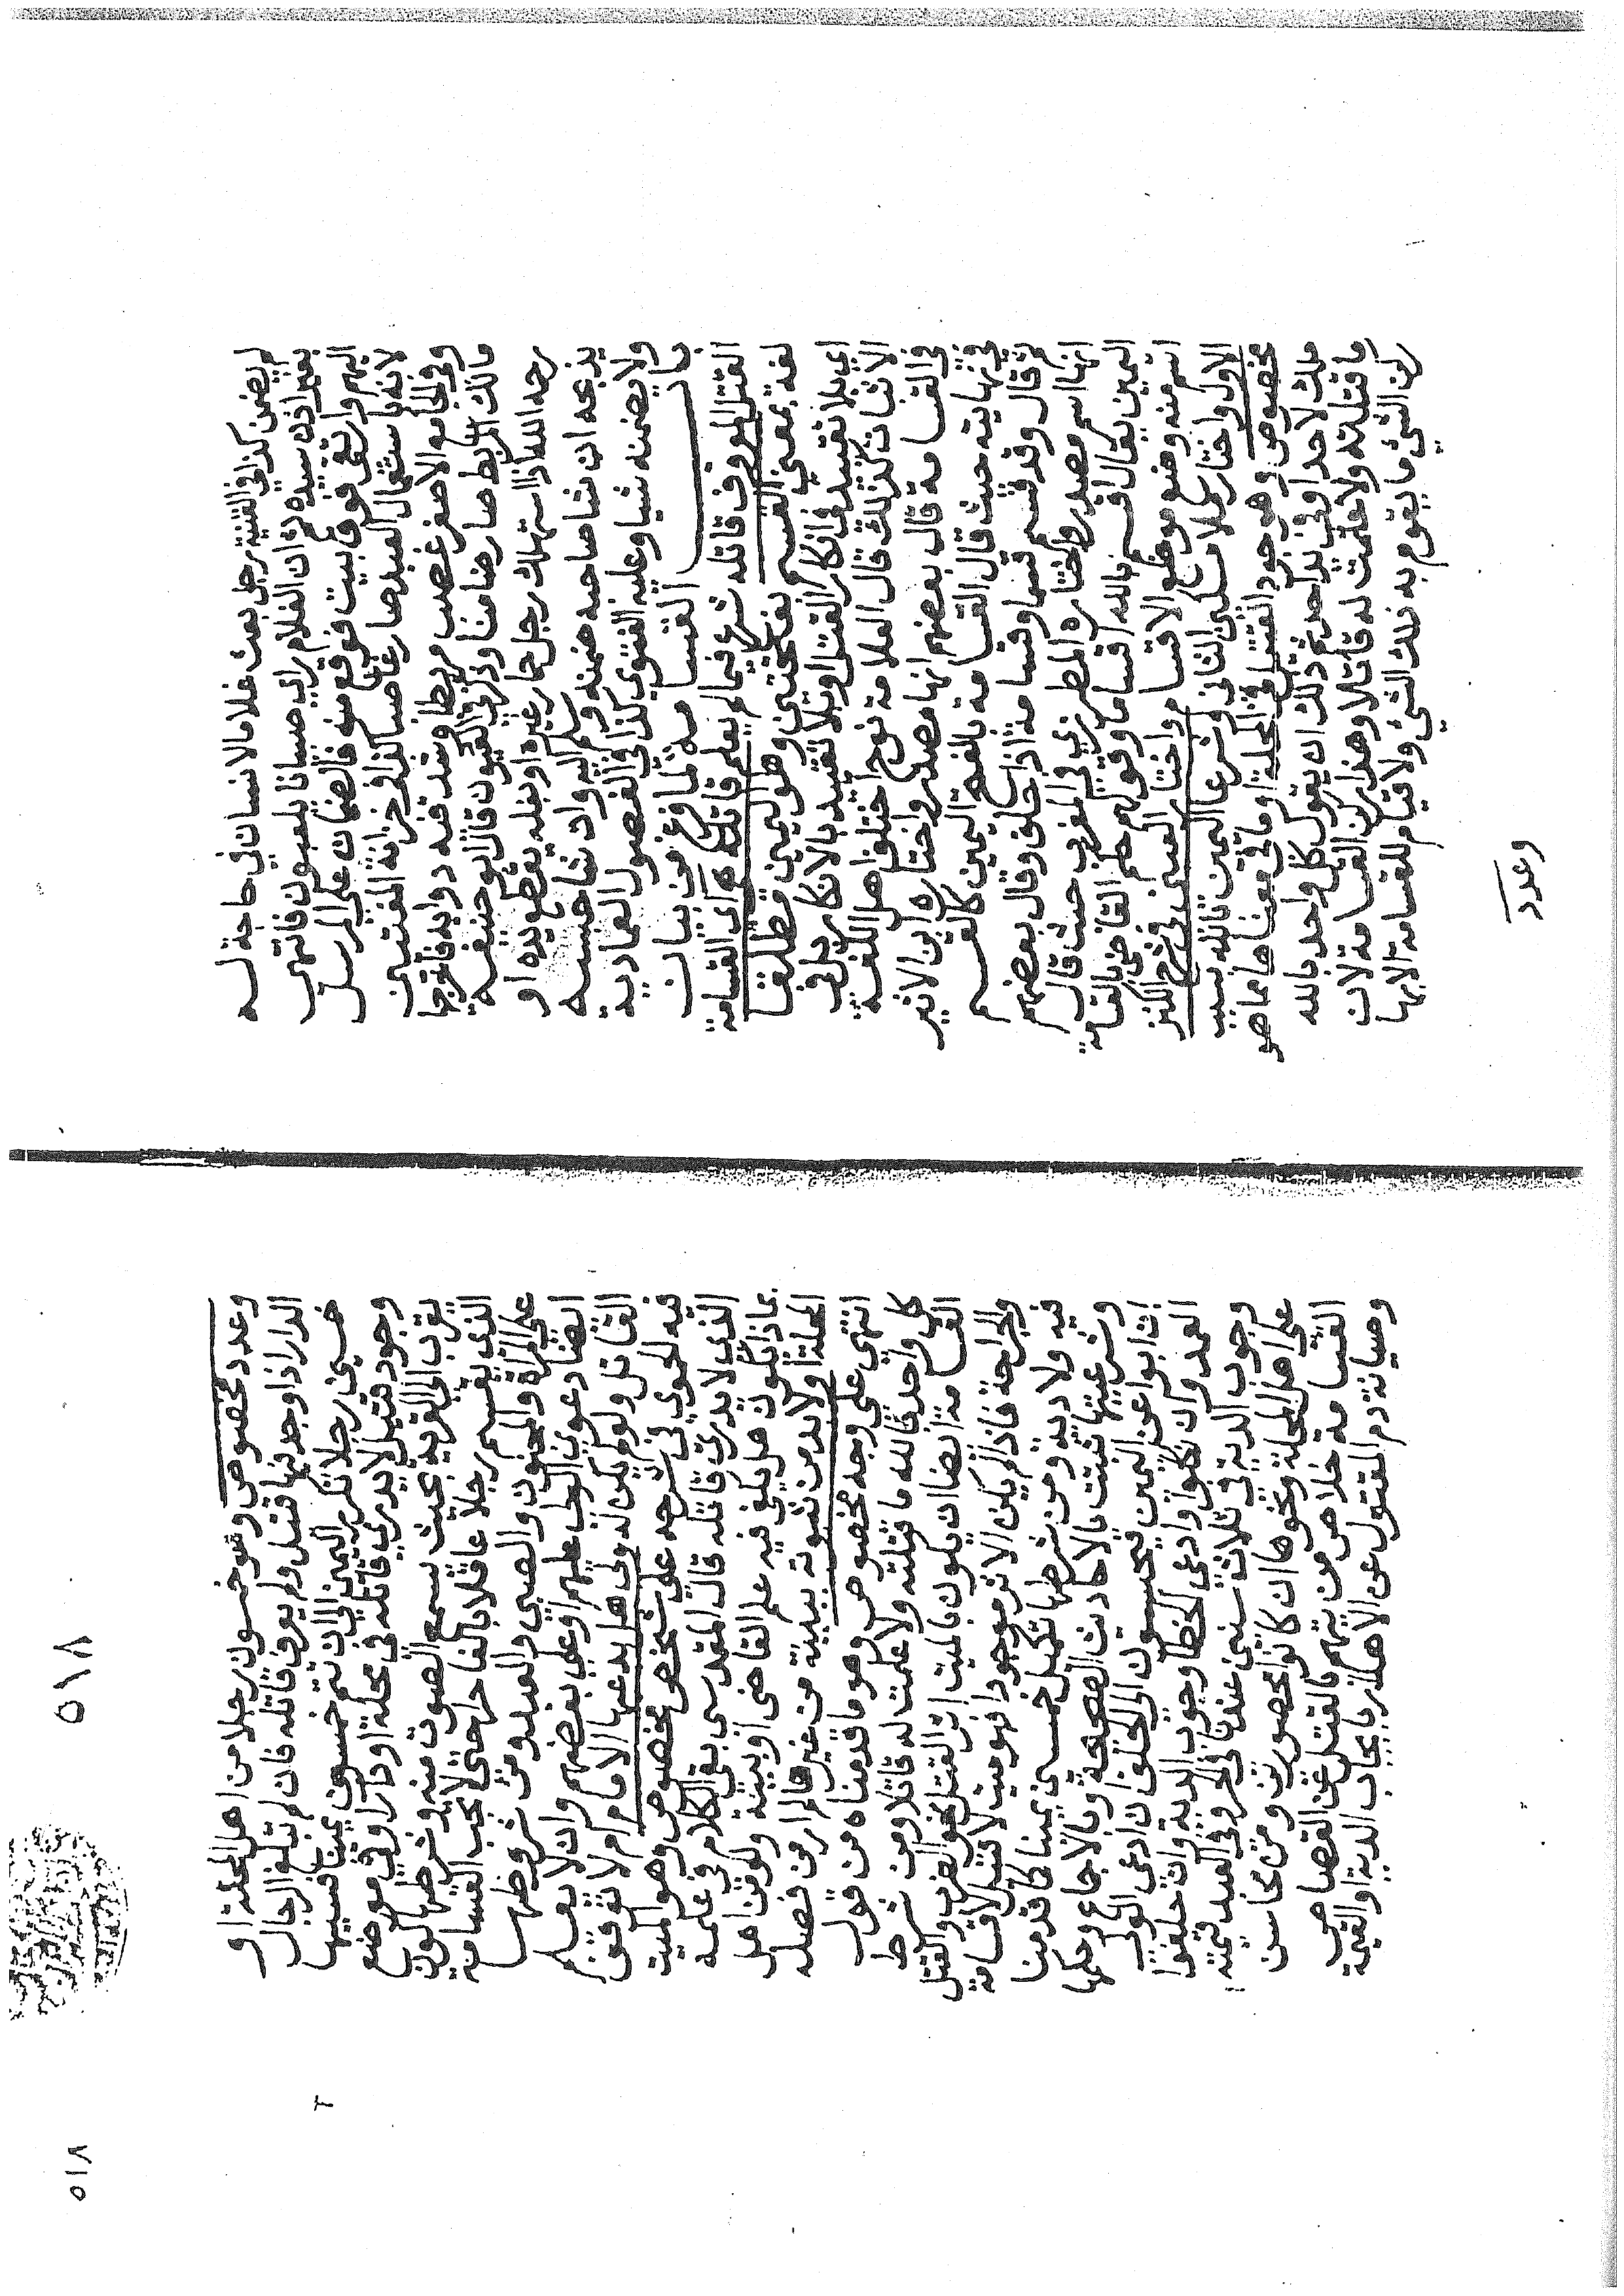 لم يضمن كذا في القنية رجل بعث غلاما لانسان في حاجة له
بغير اذن سيده ثم ان الغلام راى صبيانا يلعبون فانتهى
اليهم وارتقى فوق بيت فوقع منه فالضمان على المرسل
لانه باستعمال العبد صار غاصبا كذا في خزانة المفتين
وفي الجامع الاصغر غصب مربطا وشد فيه دوابه فاخرجها
مالك المربط صار ضامنا وذكر في العيون قال ابو حنيفة
رحمه الله اذا استهلك رجل حمار غيره او بغله بقطع يده او
يذبحه ان شا صاحبه ضمنه وسلم اليه وان شا حبسه
ولا يضمنه شيا وعليه الفتوى كذا في الفصول العمادية
باب القسامة لما فرغ من بيان
القتل المعروف قاتله شرع فيما لم يعلم قاتله هي اي القسامة
لغة بمعنى القسم بفتحتين وهو اليمين مطلقا
اي بلا تقييد في انكار القتل او بلا تقييد بالانكار بل في
الاثبات كذلك قال العلامة نوح اختلف اهل اللغة
في القسامة قال بعضهم انها مصدر واختاره ابن الاثير
في نهايته حيث قال القسامة بالفتح اليمين كالقسم
ثم قال وقد قسم قسما وقسامة اذا حلف وقال بعضهم
انها اسم مصدر واختاره المطرزي في المغرب حيث قال
اليمين يقال اقسم بالله اقساما وقولهم حكم القاضي بالقسامة
اسم منه وضع موضع الاقسام واختار العيني في شرح الكنز
الاول واختار منلا مسكين الثاني وشرعا اليمين بالله بسبب
مخصوص وهو وجود القتيل في المحلة او ما في معناها مما هو
ملك لاحد او في يد احد ذلك ان يقول كل واحد بالله
ما قتلته ولا علمت له قاتلا وهذا ركن القسامة لان
ركن الشئ ما يقوم به ذلك الشئ ولا قيام للقسامة الا بها
وعدد
٥١٨
وعدد مخصوص وهو خمسون رجلا من اهل المحلة او
الدار اذا وجد فيها قتيل ولم يعرف قاتله فان لم تبلغ الرجال
خمسين رجلا تكرر اليمين الى ان تتم خمسون يمينا سببها
وجود قتيل لا يدرى قاتله في محلة او دار او في موضع
يقرب الى القرية بحيث يسمع الصوت منه وشرطها كون
الذي يقسم رجلا عاقلا بالغا حرا حتى لا يجب القسامة
على المراة والمجنون والصبي والعبد ومن شروطها
ايضا دعوى الولي عليهم او على بعضهم وان لا يعلم
القاتل ولو لم يكن له ولي هل يدعيها الامام ام لا توقف
فيه الحموي في شرحه على شخص مخصوص وهو الميت
الذي لا يدرى قاتله قال المقدسي بقي الكلام في علمه
بماذا يكون هل يكفي فيه علم القاضي او ببينة ولو من اهل
المحلة او لا بد من ثبوته ببينة من غيرها لم ار من فصله
انتهى على وجه مخصوص وهو ما قدمناه من قول
كل واحد بالله ما قتلته ولا علمت له قاتلا ومن شرط
القسامة ايضا ان يكون بالميت اثر القتل نحو الضرب والقتل
والجراحة فاذا لم يكن الاثر موجودا فهو ميت لا قتيل لا قسامة
فيه ولا دية ومن شرطها تكميل خمسين يمينا كما قدمنا
وشرعيتها ثبتت بالاحاديث الصحيحة وبالاجماع وحكمها
اذا ابوا عن اليمين يحبسون الى الحلف ان ادعى الولي
العمد وان نكلوا وادعى الخطا وجوب الدية وان حلفوا
وجوب الدية في ثلاث سنين عندنا في الحر وفي العبد قيمته
على اهل المحلة ونحوها ان كانوا محصورين ومن محاسن
القسامة خلاص من يتهم بالقتل عن القصاص
وصيانة دم المقتول عن الاهدار بايجاب الدية والقيمة
٥١٨